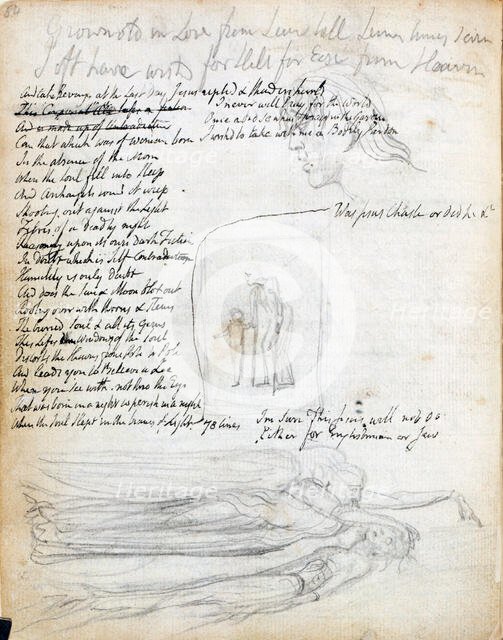 54
Grown old in Love from Seven till Seven times Seven
I oft have wishd for Hell for Ease from Heaven
And take Revenge at the Last Day Jesus replied & thunders hurld
This Corporeal I never will Pray for the World
And is made up of Contradiction Once I did so when I prayd in the Garden
Can that which was of woman born I wishd to take with me a Bodily Pardon
In the absence of the Morn
When the Soul fell into Sleep
And Archangels round it weep
Shooting out against the Light
Fibres of a deadly night
Reasoning upon its own Dark Fiction
Was Jesus Chaste or did he &c
In Doubt which is Self Contradiction
Humility is only Doubt
And does the Sun & Moon blot out
Rooting over with thorns & Stems
The buried Soul & all its Gems
This Lifes dim Windows of the Soul
Distorts the Heavens from Pole to Pole
And leads you to Believe a Lie
When you see with not thro the Eye
That was born in a night to perish in a night
When the Soul slept in the beams of Light 78 lines
Im Sure This Jesus will not do
Either for Englishman or Jew
Heritage
Heritage
Heritage
Heritage
Heritage